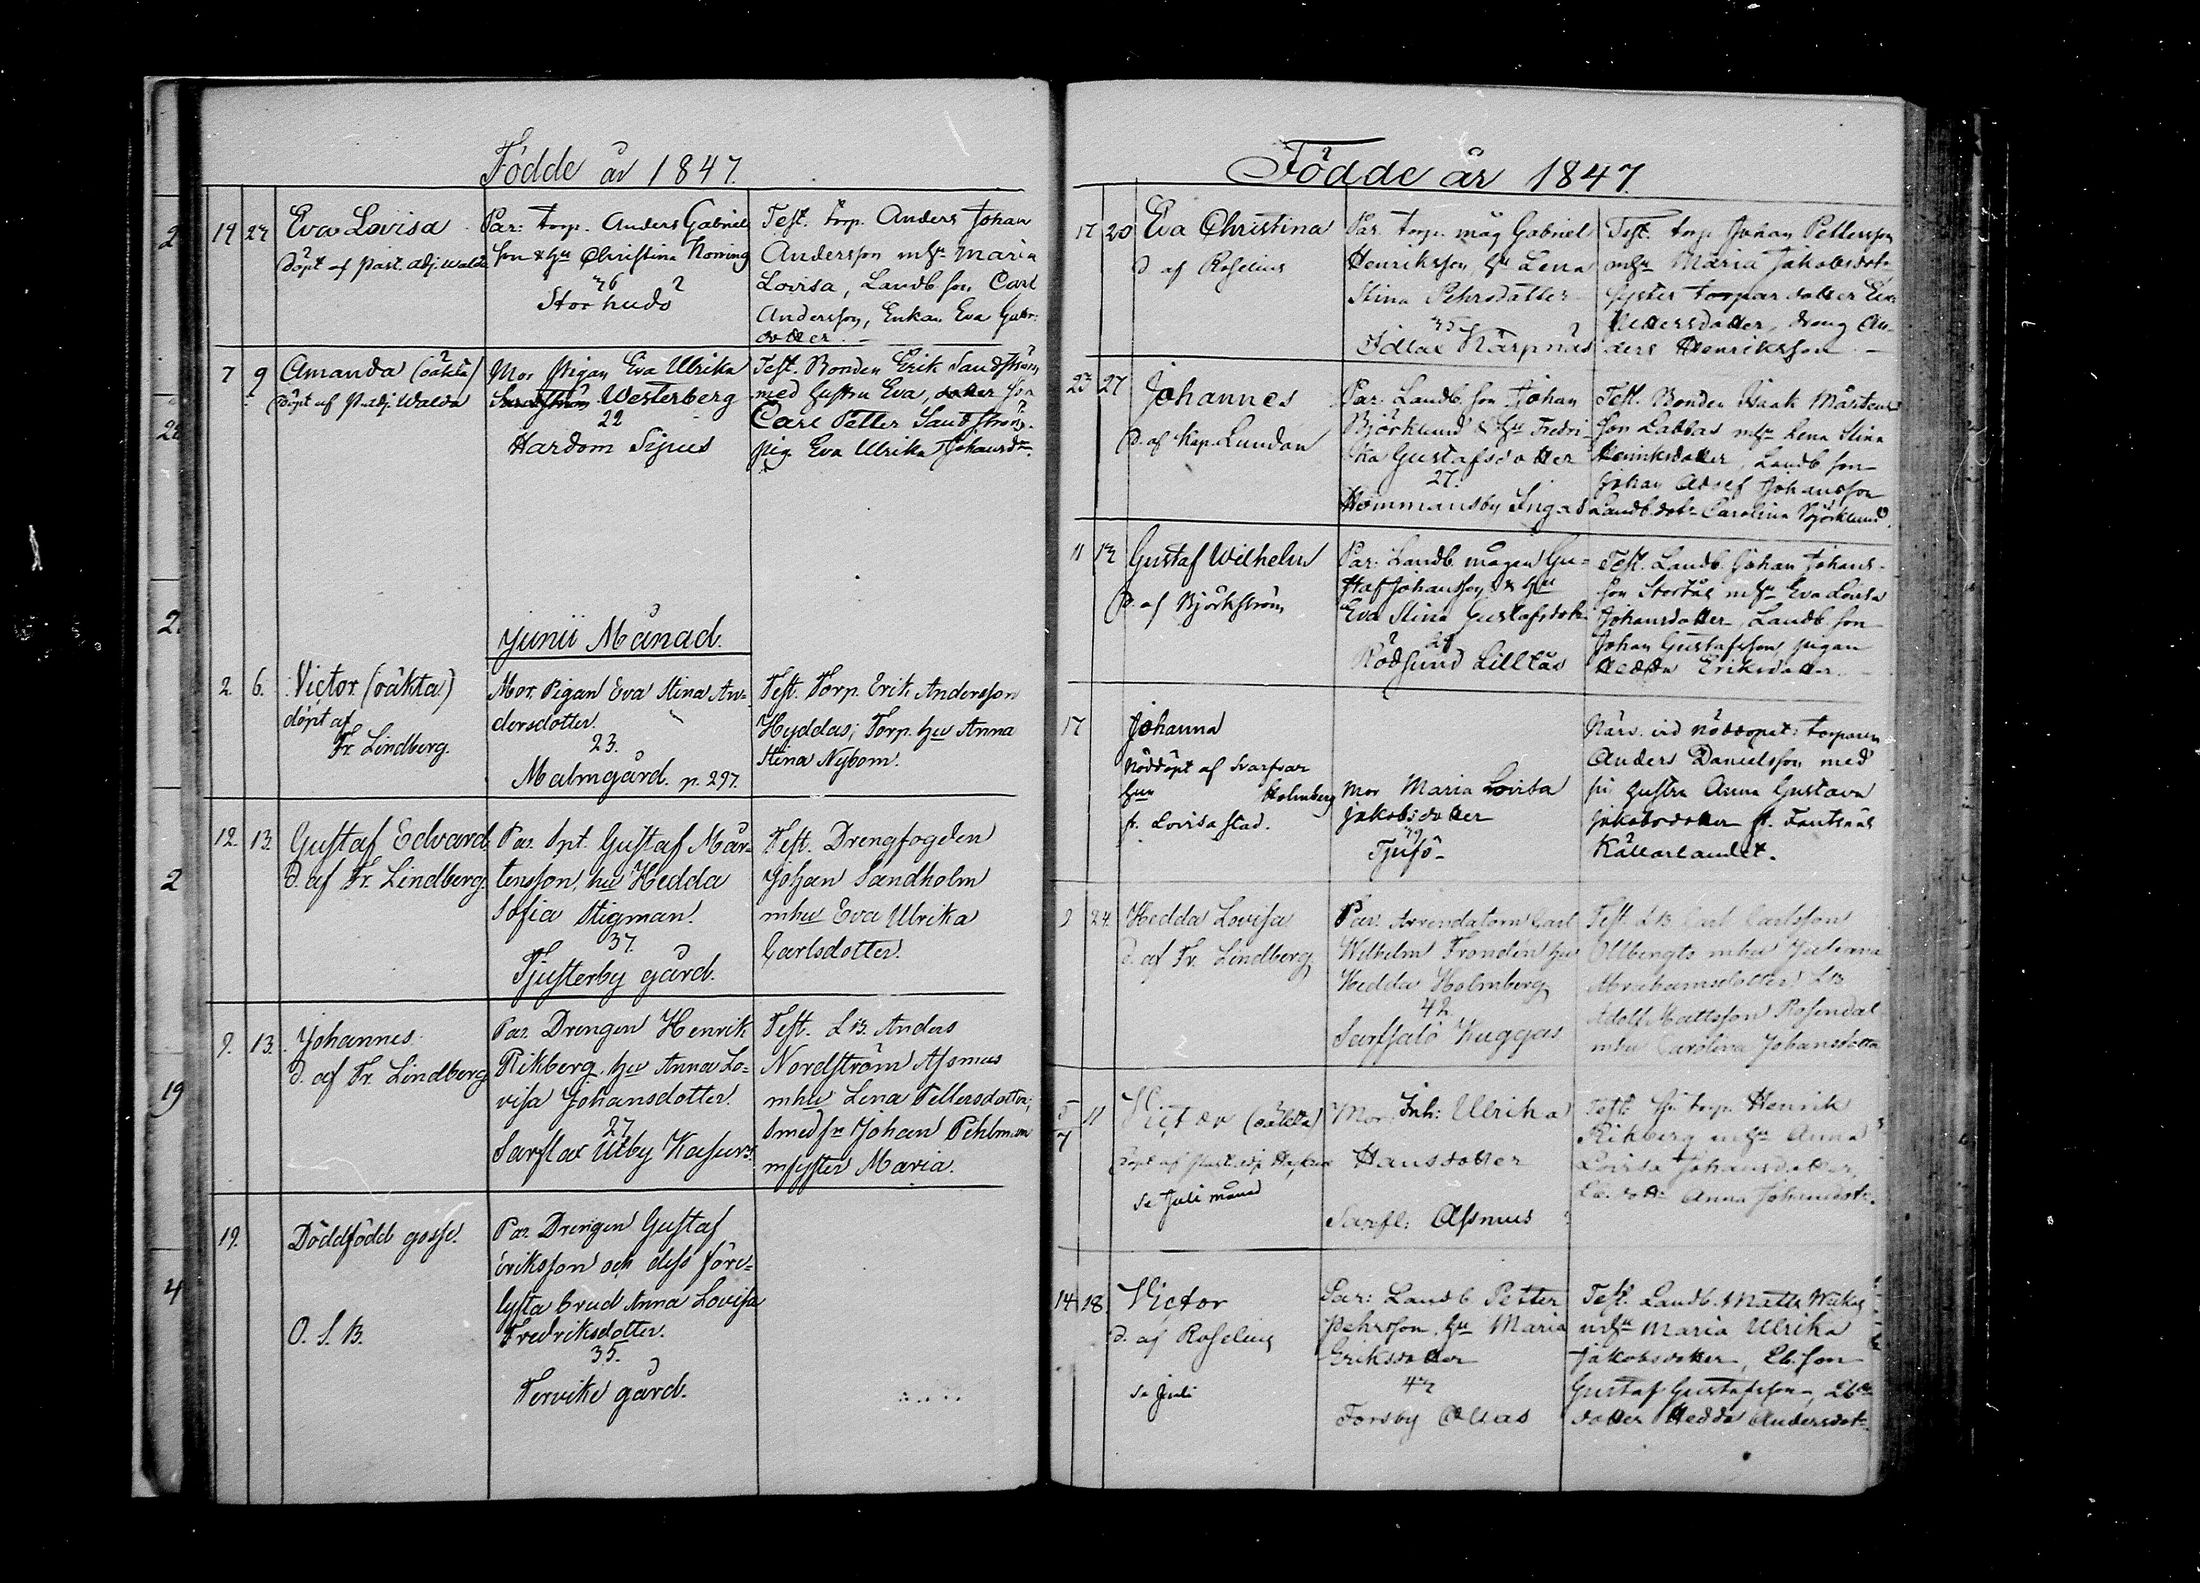 Födde år 1847.
14 27 Eva Lovisa
döpt af past. adj. Walda
Par: torp. Anders Gabriels
son & hu Christina Noring
36
Storhudö
Test. torp. Anders Johan
Andersson mhu Maria
Lovisa, Landb. son Carl
Andersson, Enkan Eva
dotter.
7 9 Amanda (oäkta)
döpt af P. adj. Walda
Mor Pigan Eva Ulrika
Westerberg
22
Hardom Sipus
Test. Bonden Erik Sandström
med hustru Eva, dotter son
Carl Petter Sandström
pig. Eva Ulrika Johansdr.
Junii Månad.
2. 6. Victor (oäkta)
döpt af
Fr. Lindberg.
Mor. Pigan Eva Stina An-
dersdotter.
23.
Malmgård. p. 297.
Test. Torp. Erik Andersson
Hyddas; Torp. hu Anna
Stina Nybom.
12. 13. Gustaf Edvard
d. af Fr. Lindberg.
Par. Spt. Gustaf Mår-
tensson, hu Hedda
Sofia Stigman.
37.
Tjusterby gård.
Test. Drengfogden
Johan Sandholm
mhu Eva Ulrika
Carlsdotter.
9. 13. Johannes.
d. af Fr. Lindberg
Par. Drengen Henrik
Rikberg, hu Anna Lo-
visa Johansdotter.
27
Sarflax Utby
Test. L.B. Anders
Nordström Assmus
mhu Lena Pettersdotter;
Smed sn Johan Pehlman
m syster Maria.
19. Dödfödd gosse.
O. S. B.
Par. Drengen Gustaf
Eriksson och dess före-
lysta brud Anna Lovisa
Fredriksdotter.
35.
Tervike gård.
Födde år 1847.
17 20 Eva Christina
d. af Roselius
Par. torp. måg Gabriel
Henriksson, hu Lena
Stina Pehrsdotter
35
Idlax Kärpnäs
Test. torp. Johan Pettersson
mhu Maria Jakobsdotr
syster torpardotter
Pettersdotter, dreng An-
ders Henriksson
23 27 Johannes
d. af Kap. Lundan
Par. Landb. son Johan
Björklund & hu Fredri-
ka Gustafsdotter
27.
Hommansby Ingas
Test. Bonden Isaak Mårtens-
son Labbas mhu Lena Stina
Henriksdotter, Landb. son
Johan Adolf Johansson
Landb. dotr Carolina Björklund
11 13 Gustaf Wilhelm
d. af Björkström
Par. Landb. mågen Gu-
staf Johansson & hu
Eva Stina Gustafsdotr
Rödsund Lilltås
Test. Landb. Johan Johans-
son Stortås mhu Eva Lovisa
Johansdotter, Landb. son
Johan Gustafsson pigan
Hedda Eriksdotter.
17 Johanna
Nöddöpt af Svarfvar
hun Holmberg
fr. Lovisa stad.
mor Maria Lovisa
Jakobsdotter
Tjusö
Närv. vid nöddopet: torparen
Anders Danielsson med
sin hustru Anna Gustava
Jakobsdotter fr. Fantsnäs
Källarlandet.
9 24. Hedda Lovisa
d. af Fr. Lindberg
Par. Arrendatorn Carl
Wilhelm Frondén hu
Hedda Holmberg
42.
Sarfsalö Kuggas
Test. L.B. Carl Carlsson
Ollbengts mhu Juliana
Abrahamsdotter; L.B.
Adolf Mattsson Rosendal
mhu Carolina Johansdotter
5/7 11 Victor (oäkta)
döpt af past. adj.
se Juli månad
Mor. Inh: Ulrika
Hansdotter
Sarfl: Assmus
Test: torp. Henrik
Rikberg mhu Anna
Lovisa Johansdotter,
Lb. dotr Anna Johansdotr.
14 18. Victor
d. af Roselius
se Juli
Par: Landb Petter
Pehrsson, hu Maria
Eriksdotter
43
Forsby Olsas
Test. Landb. Matts
mhu Maria Ulrika
Jakobsdotter, Lb. son
Gustaf Gustafsson, Lb.
dotter Hedda Andersdotr.